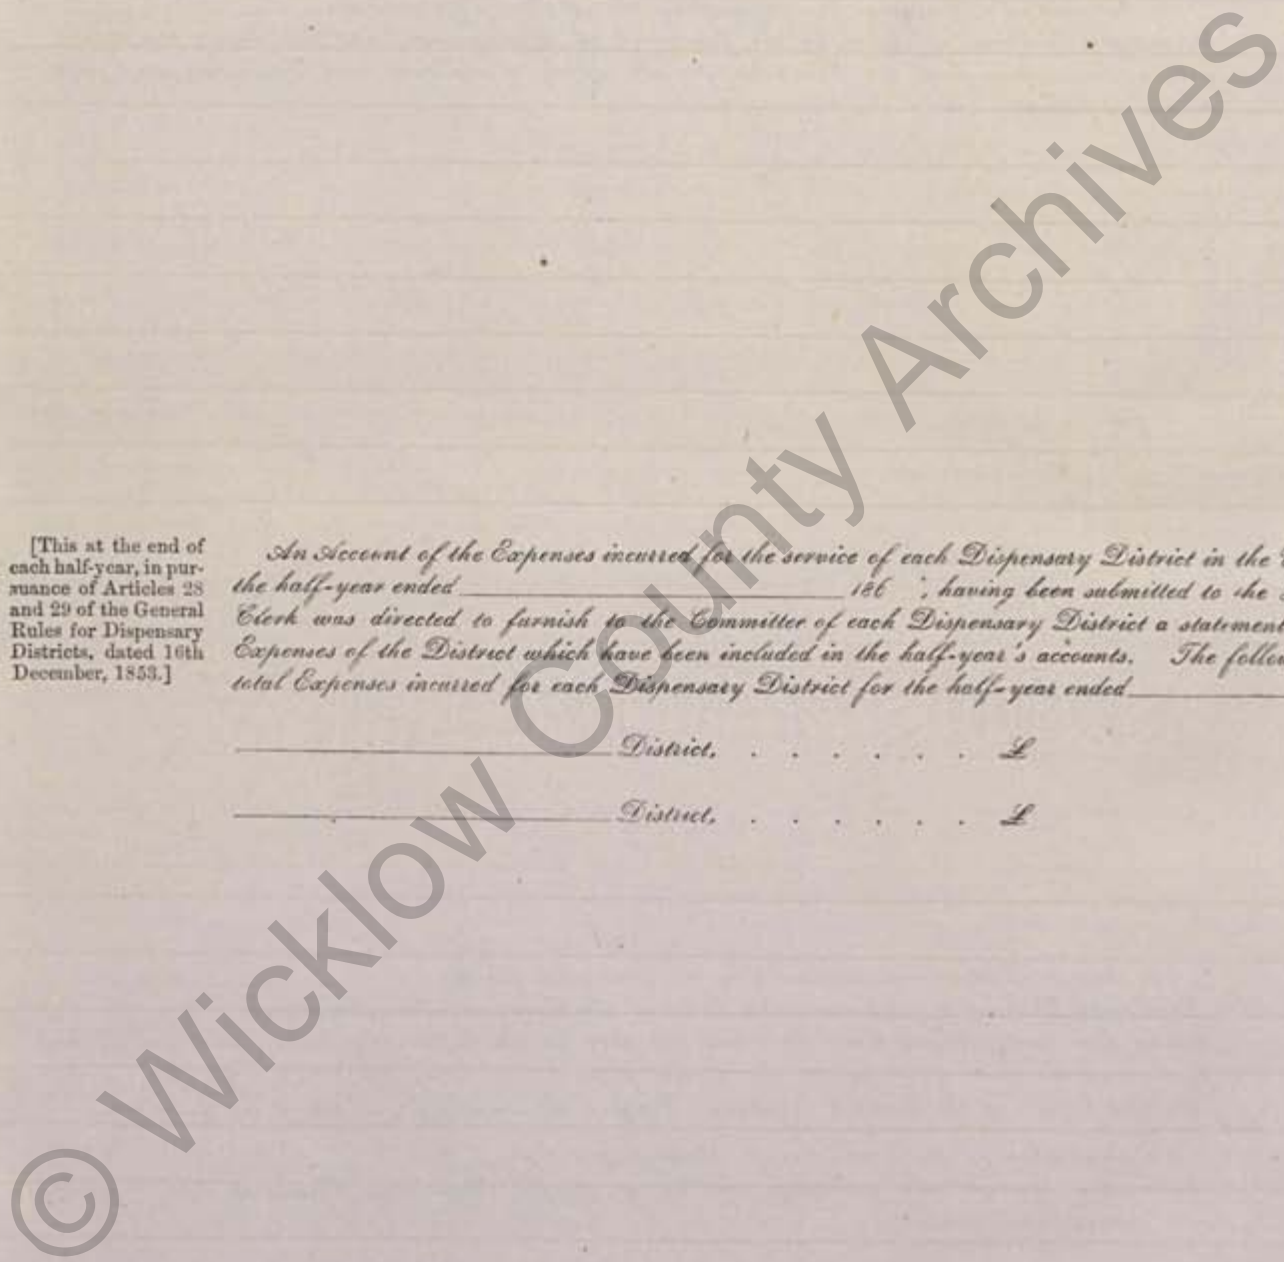 [This at the end of
each half-year, in pur-
suance of Articles 28
and 29 of the General
Rules for Dispensary
Districts, dated 16th
December, 1853.]
An Account of the Expenses incurred for the service of each Dispensary District in the
the half-year ended 186 , having been submitted to the
Clerk was directed to furnish to the Committee of each Dispensary District a statement
Expenses of the District which have been included in the half-year's accounts. The follo
total Expenses incurred for each Dispensary District for the half-year ended
District, . . . . . . £
District, . . . . . . £
© Wicklow County Archives